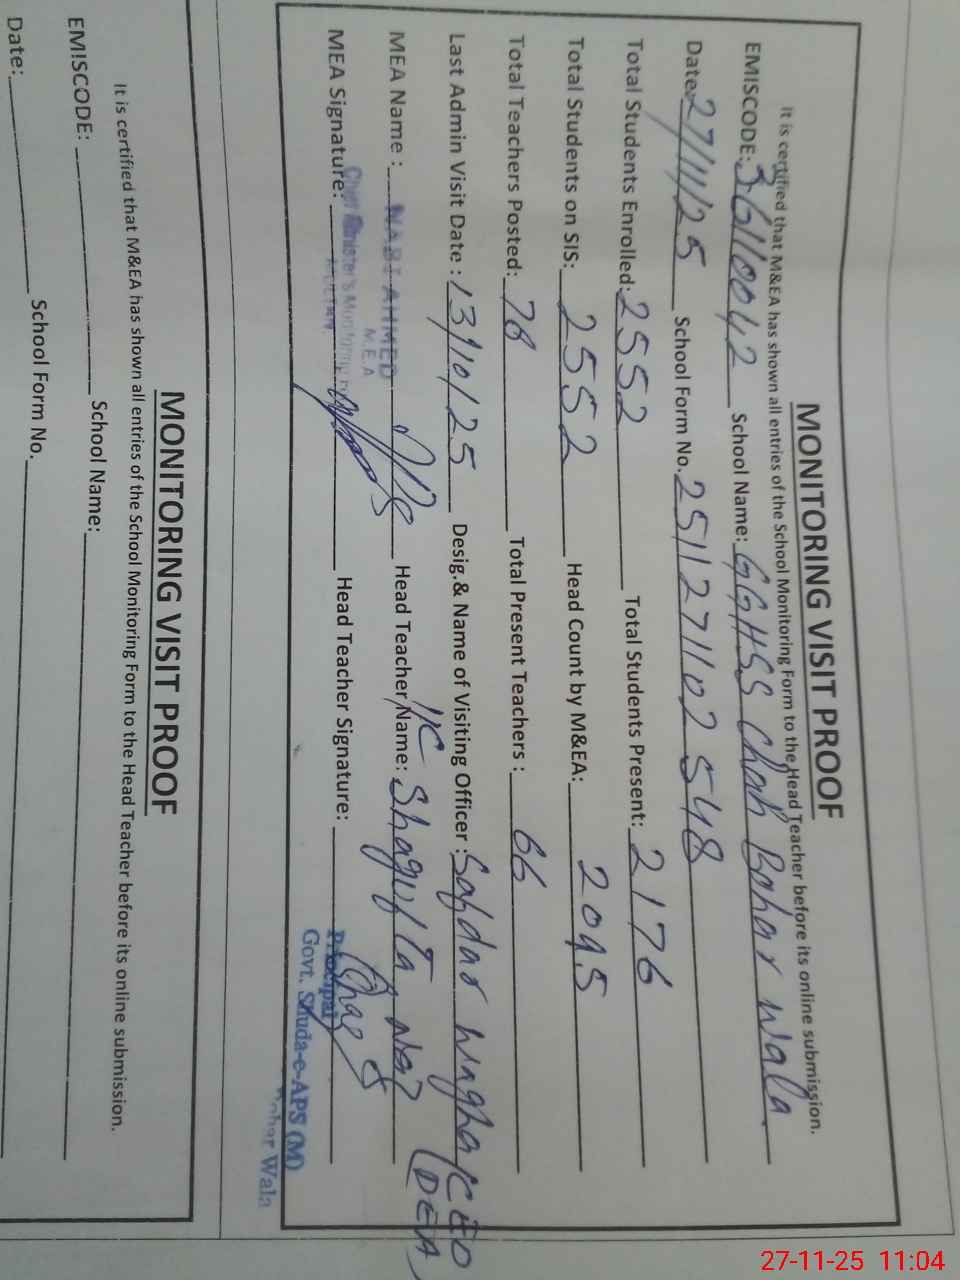 MONITORING VISIT PROOF
It is certified that M&EA has shown all entries of the School Monitoring Form to the Head Teacher before its online submission.
EMISCODE: 36110042 School Name: GGHSS Chah Bohar Wala
Date: 27/11/25 School Form No. 2511271102548
Total Students Enrolled: 2552 Total Students Present: 2176
Total Students on SIS: 2552 Head Count by M&EA: 2095
Total Teachers Posted: 78 Total Present Teachers : 66
Last Admin Visit Date : 13/10/25 Desig.& Name of Visiting Officer : Safdar Wagha (CEO
(DEA)
MEA Name : NABI AHMED Head Teacher Name: I/C Shagufta
M.E.A
MEA Signature: Chief Minister's Monitoring Head Teacher Signature:
MULTAN.
Principal
Govt. Shuda-e-APS (M)
Bohar Wala
MONITORING VISIT PROOF
It is certified that M&EA has shown all entries of the School Monitoring Form to the Head Teacher before its online submission.
EMISCODE: School Name:
Date: School Form No.
27-11-25 11:04